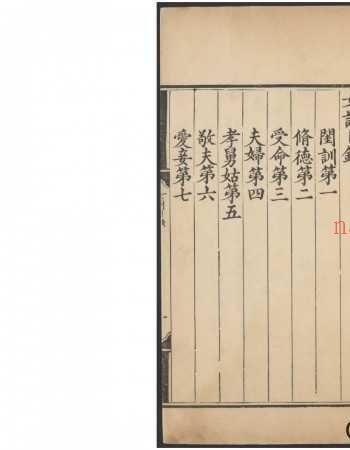 女訓目錄
閨訓第一
脩德第二
受命第三
夫婦第四
孝舅姑第五
敬夫第六
愛妾第七